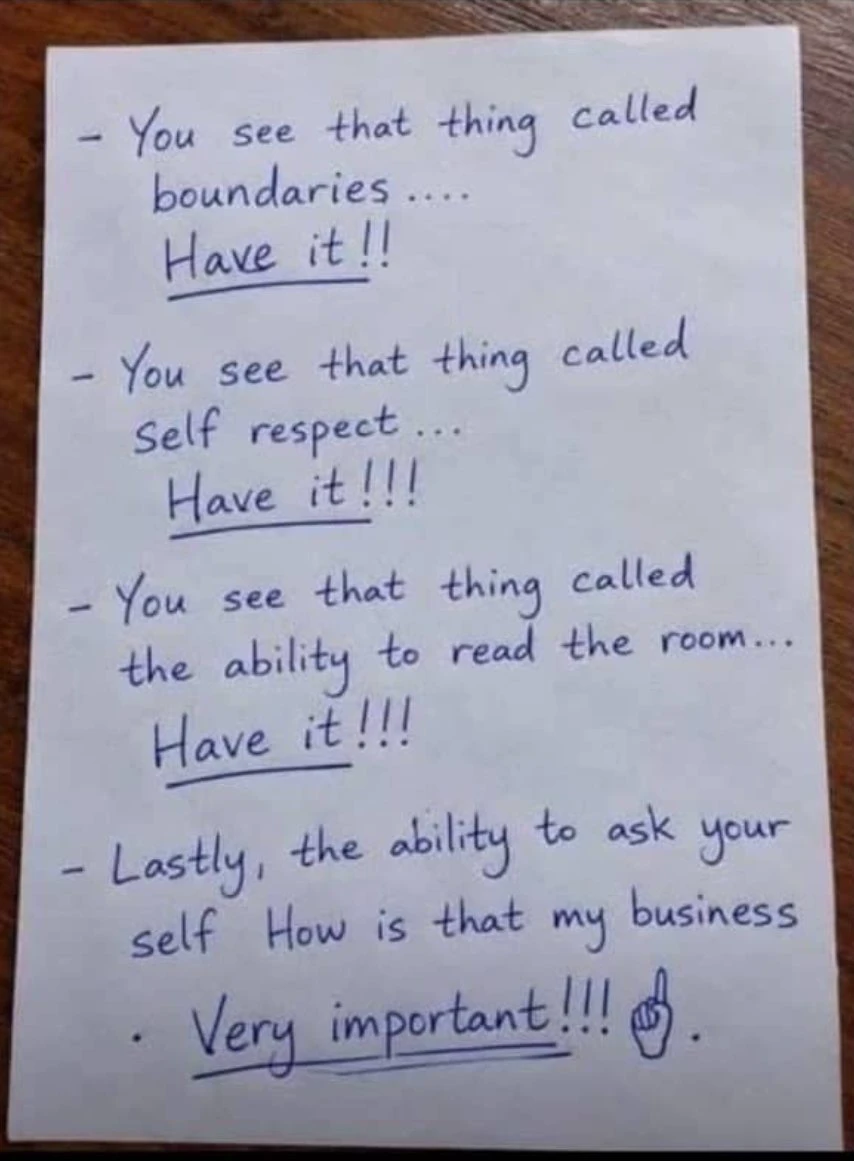 - You see that thing called
boundaries ....
Have it!!
- You see that thing called
Self respect ...
Have it!!!
- You see that thing called
the ability to read the room...
Have it!!!
- Lastly, the ability to ask your
self How is that my business
. Very important!!! ☝.